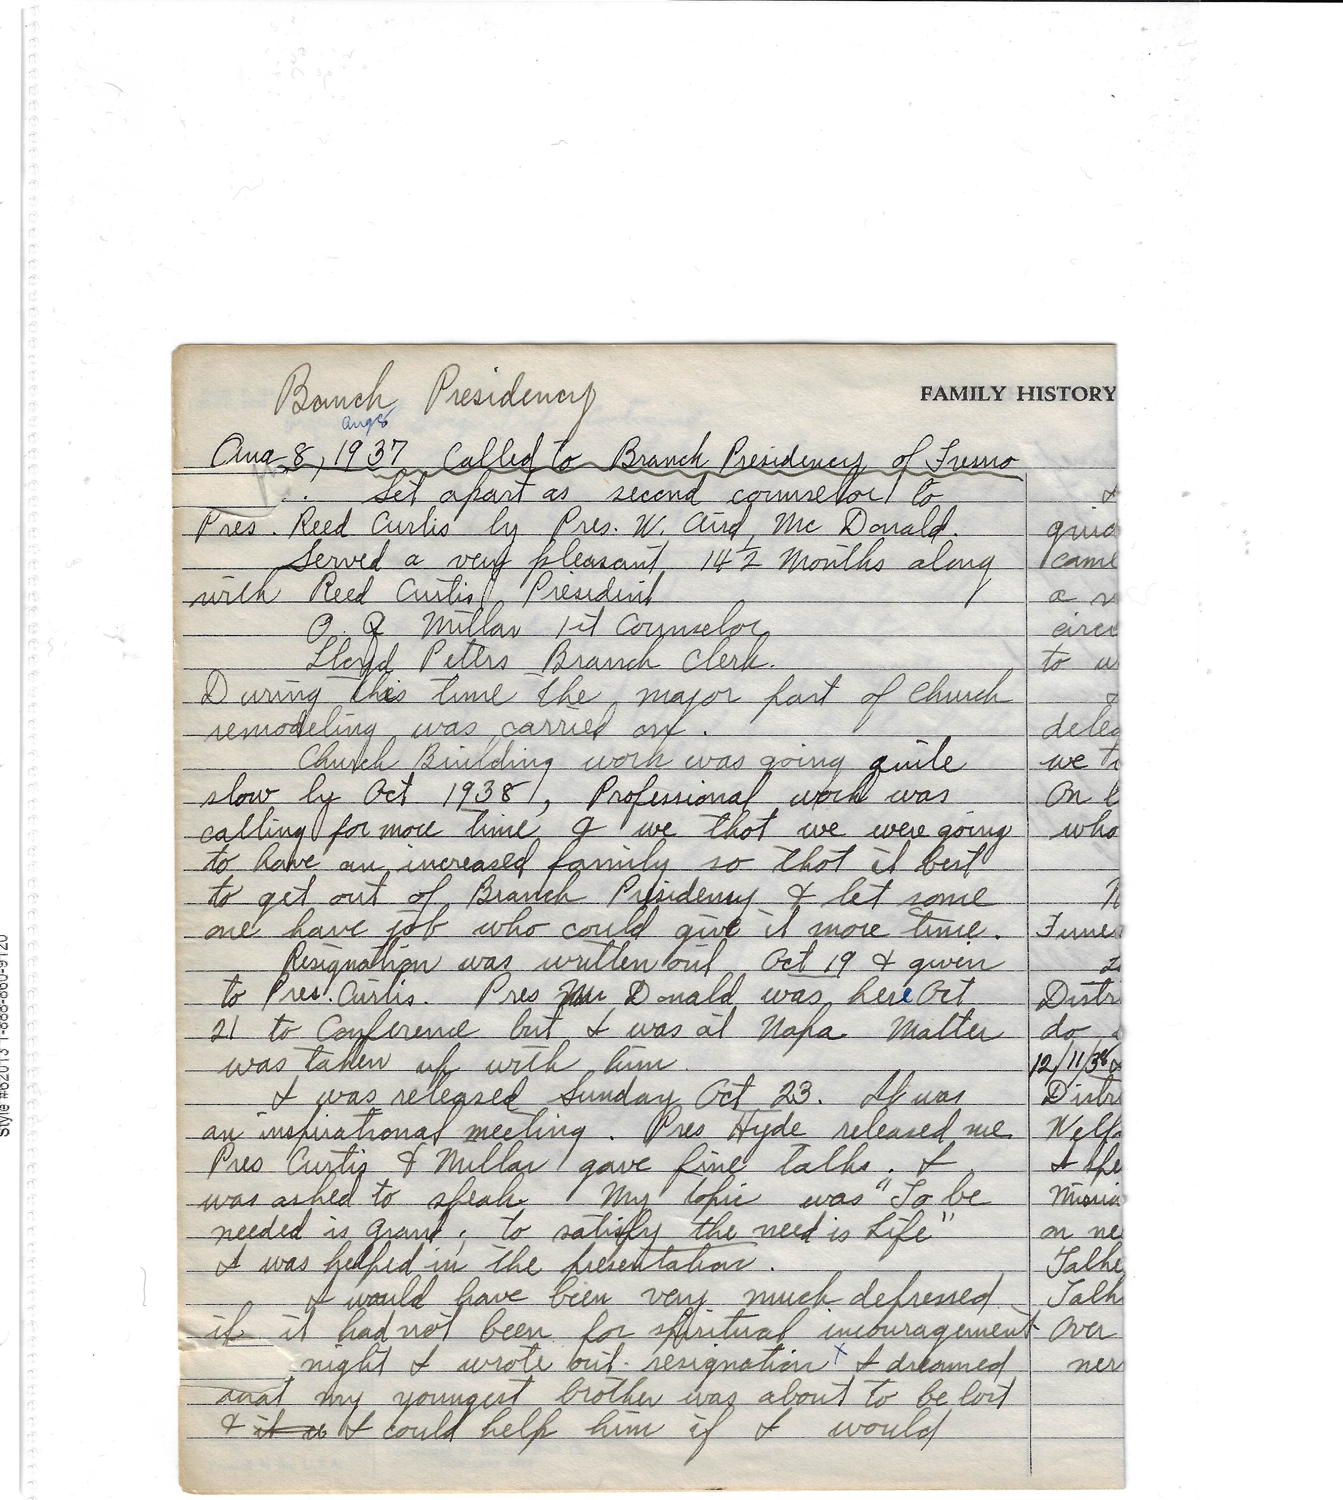 Branch Presidency
FAMILY HISTORY
Aug 8
Aug 8, 1937 Called to Branch Presidency of Fresno
Set apart as second counselor to
Pres. Reed Curtis by Pres. W. Aird Mc Donald.
Served a very pleasant 14 1/2 Months along
with Reed Curtis President
O. R. Millar 1st Counselor
Lloyd Peters Branch Clerk.
During this time the major part of Church
remodeling was carried on.
Church Building work was going quite
slow by Oct 1938, Professional work was
calling for more time, & we that we were going
to have an increased family so that it best
to get out of Branch Presidency & let some
one have job who could give it more time.
Resignation was written out Oct 19 & given
to Pres. Curtis. Pres Mc Donald was here Oct
21 to Conference but I was at Napa Matter
was taken up with him.
I was released Sunday Oct 23. It was
an inspirational meeting. Pres Hyde released me
Pres Curtis & Millar gave fine talks. I
was asked to speak My topic was "To be
needed is grand; to satisfy the need is Life"
I was helped in the presentation.
I would have been very much depressed
if it had not been for spiritual incouragement
night I wrote out resignation x I dreamed
that my youngest brother was about to be lost
& it is I could help him if I would
&
came
a
to
we
On
who
Distri
do
12/11/38
Distri
Welfa
I spe
Missio
on ne
Talke
Talk
over
ner
Style #62013 1-888-880-9120